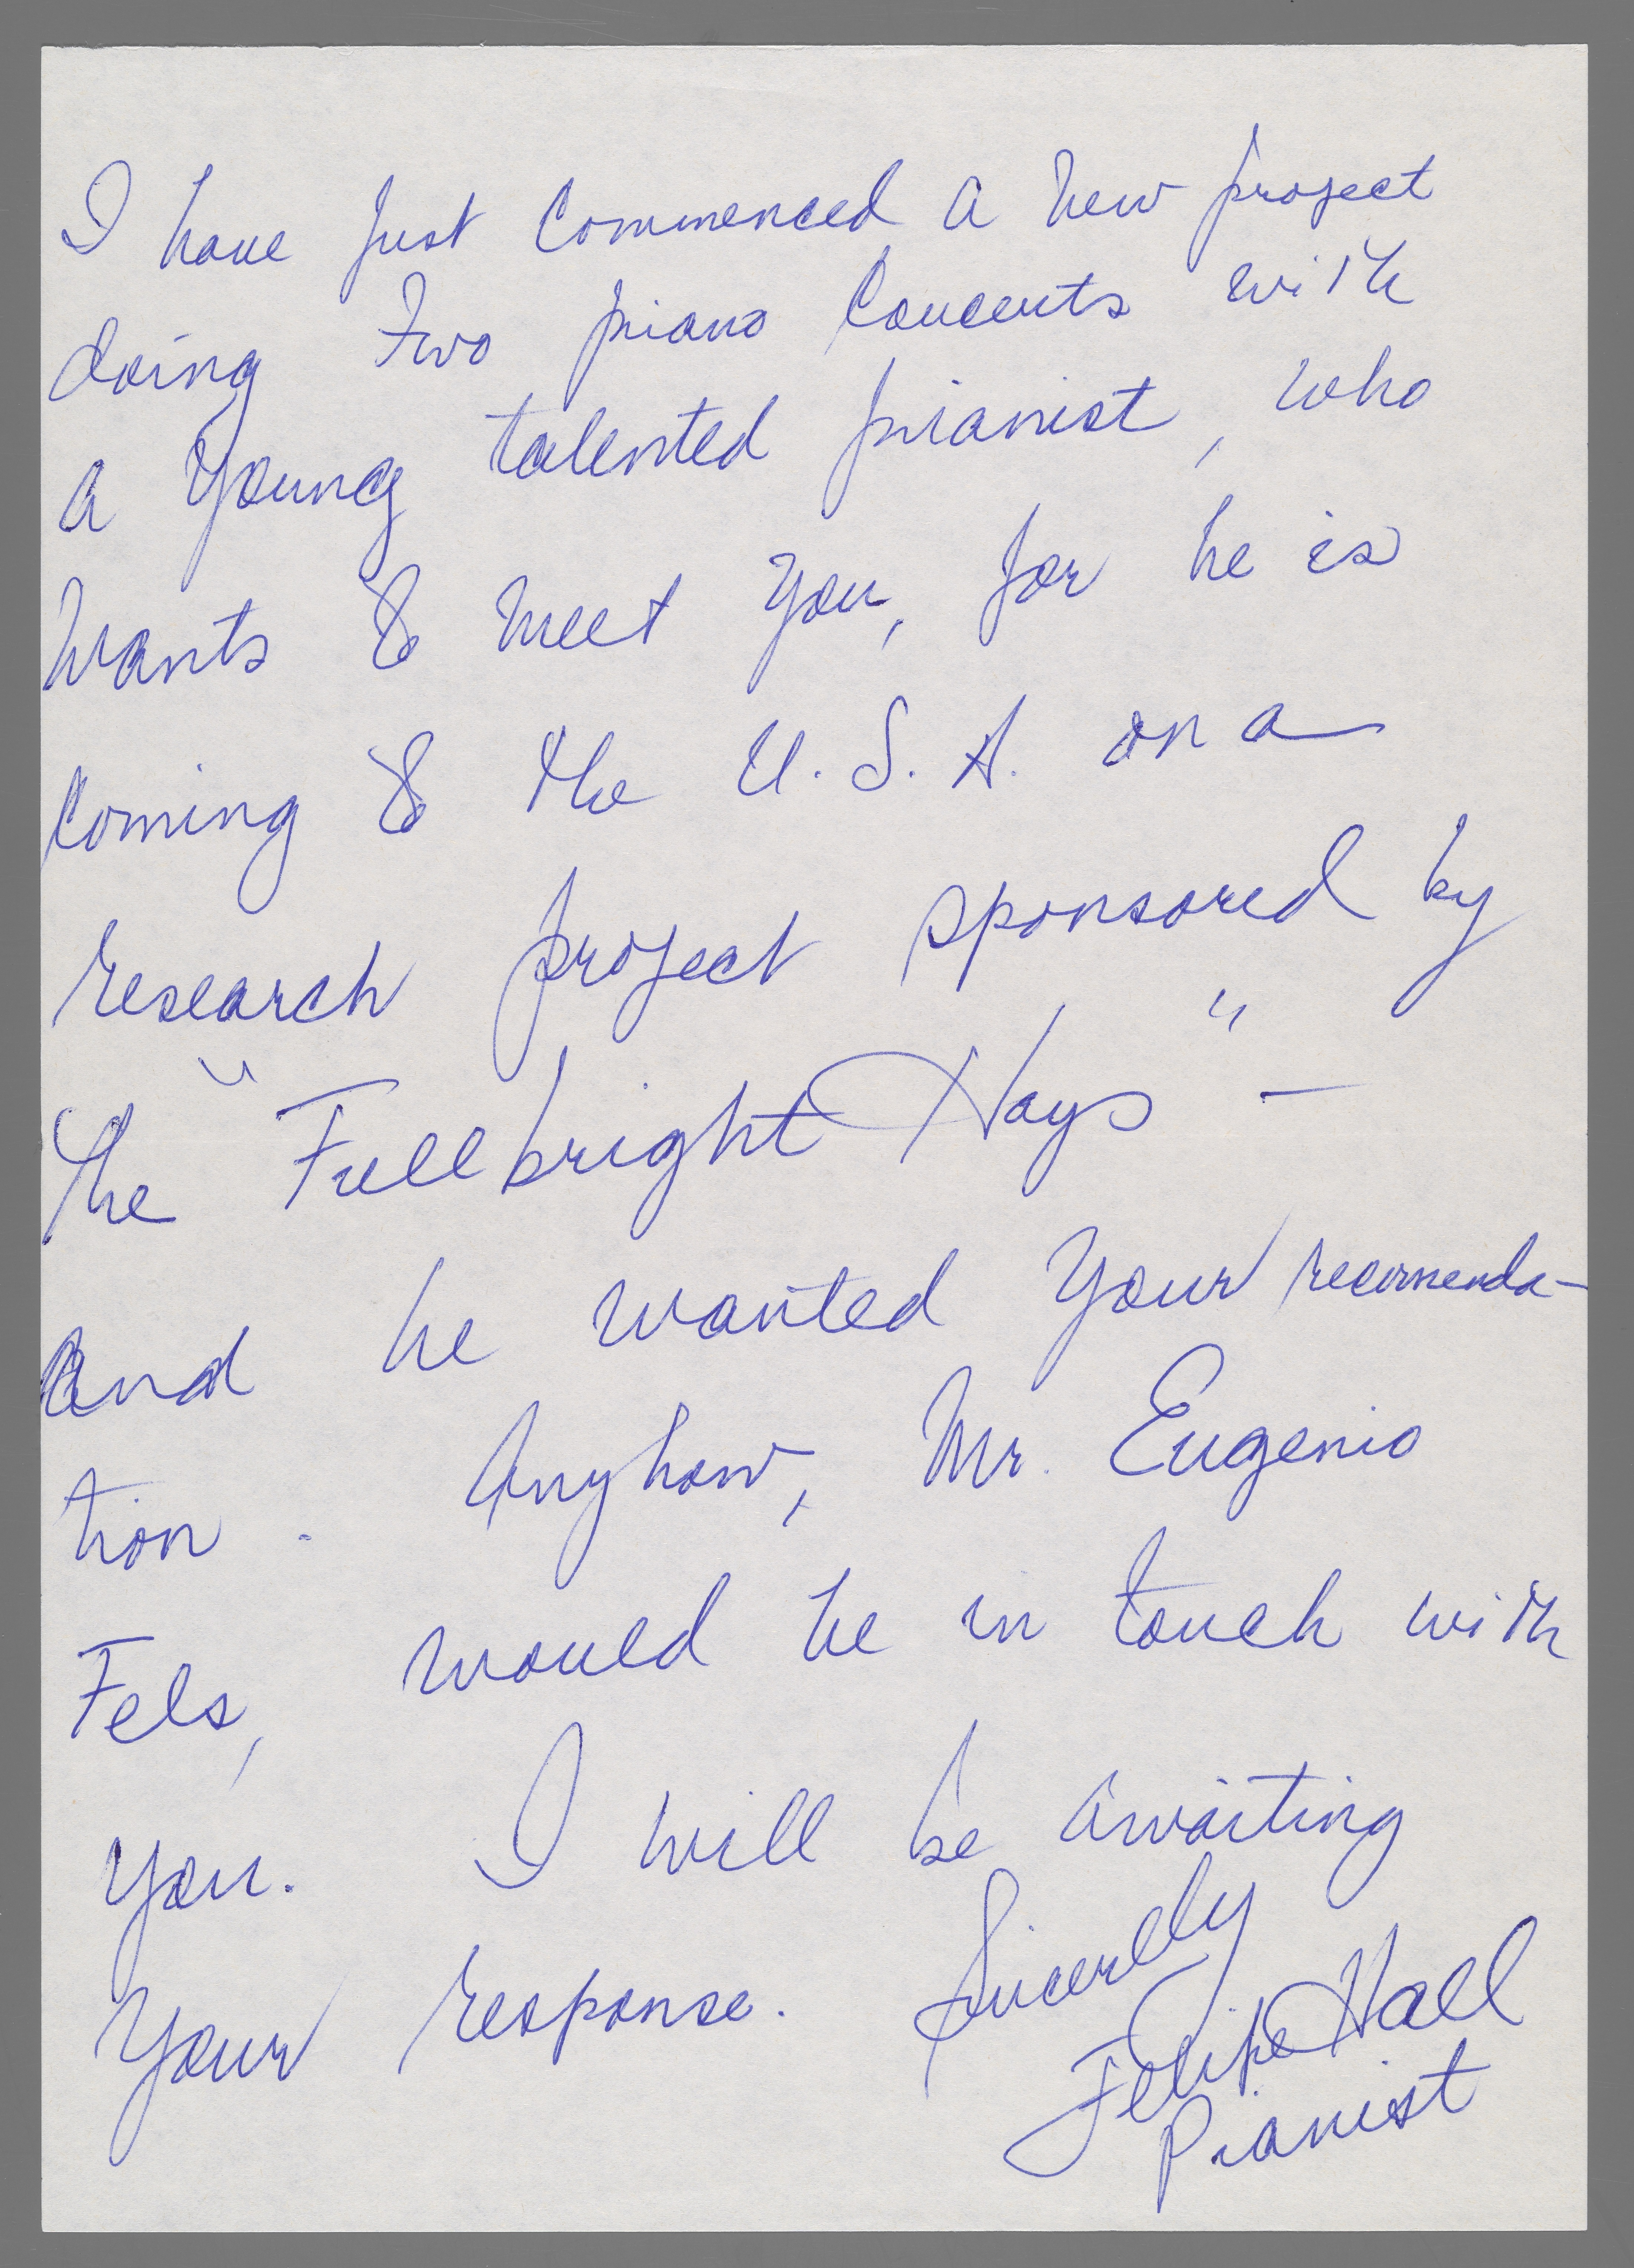 I have just commenced a new project
doing two piano concerts with
a young talented pianist, who
wants to meet you, for he is
coming to the U.S.A. on a
research project sponsored by
the "Fullbright Hays" -
and he wanted your recomenda-
tion. Anyhow, Mr. Eugenio
Fels, would be in touch with
you. I will be awaiting
your response. Sincerely
Felipe Hall
Pianist